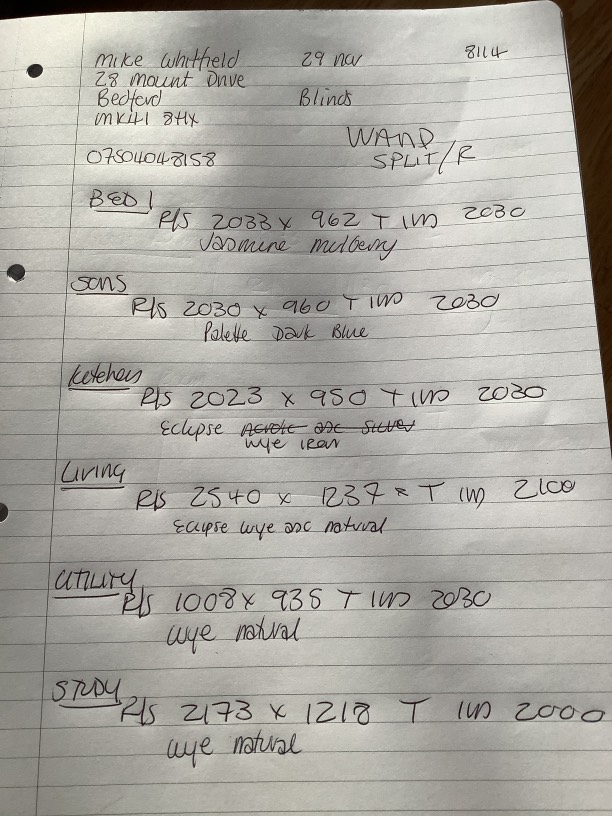 Mike Whitfield 29 nov 8114
28 Mount Drive
Bedford Blinds
MK41 8HX
07504048158
WAND
SPLIT/R
BED 1
R/S 2033 x 962 T IW 2030
Jasmine mulberry
Sons
R/S 2030 x 960 T IW 2030
Palette Dark Blue
Kitchen
R/S 2023 x 950 T IW 2030
Eclipse
wye
Living
R/S 2540 x 1237 T IW 2100
Eclipse wye asc natural
UTILITY
R/S 1008 x 935 T IW 2030
wye natural
STUDY
R/S 2173 x 1218 T IW 2000
wye natural